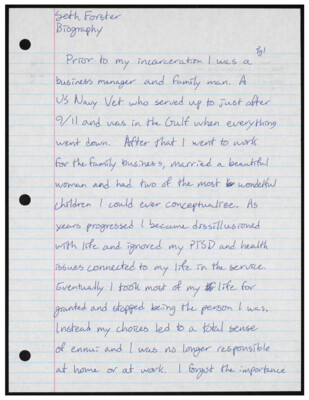 Seth Forster
Biography
Pg1
Prior to my incarceration I was a
business manager and family man. A
US Navy Vet who served up to just after
9/11 and was in the Gulf when everything
went down. After that I went to work
for the family business, married a beautiful
woman and had two of the most wondeful
children I could ever conceptualize. As
years progressed I became dissillusioned
with life and ignored my PTSD and health
issues connected to my life in the service.
Eventually I took most of my life for
granted and stopped being the person I was.
Instead my choices led to a total sense
of ennui and I was no longer responsible
at home or at work. I forgot the importance